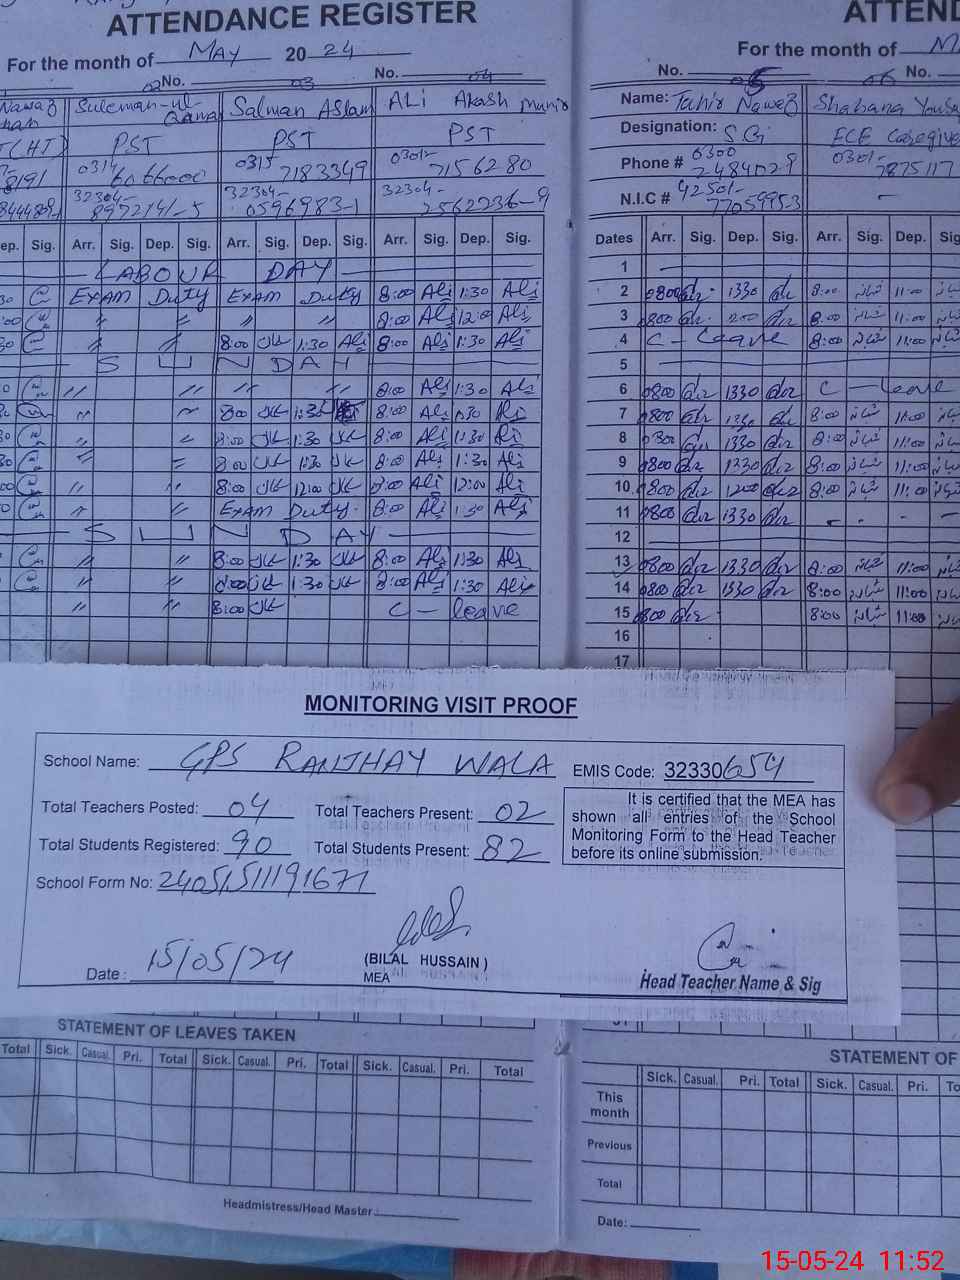 ATTENDANCE REGISTER
For the month of May 20 24
No. 03 No. 04
Suleman-ul- Salman Aslam ALi Akash Munir
PST PST PST
0314 0315 7183349 0301- 7156280
32304- 32304- 0596983-1 32304- 2562236-9
ep. Sig. Arr. Sig. Dep. Sig. Arr. Sig. Dep. Sig. Arr. Sig. Dep. Sig.
LABOUR DAY
Exam Duty Exam Duty 8:00 Ali 1:30 Ali
〃 〃 〃 〃 8:00 Ali 12:00 Ali
〃 〃 8:00 1:30 8:00 Ali 1:30 Ali
S U N D A Y
〃 〃 〃 〃 8:00 Ali 1:30 Ali
〃 〃 8:00 1:30 8:00 Ali 1:30 Ali
〃 〃 8:00 1:30 8:00 Ali 1:30 Ali
〃 〃 8:00 1:30 8:00 Ali 1:30 Ali
〃 〃 8:00 12:00 8:00 Ali 12:00 Ali
〃 〃 Exam Duty. 8:00 Ali 1:30 Ali
S U N D A Y
〃 〃 8:00 1:30 8:00 Ali 1:30 Ali
〃 〃 8:00 1:30 8:00 Ali 1:30 Ali
〃 〃 8:00 C - leave
ATTEND
For the month of M
No. 05 06 No.
Name: Tahir Nawaz Shabana
Designation: ECE Caregive
Phone # 0300 2484029 0301- 7875117
N.I.C # 42501- -
Dates Arr. Sig. Dep. Sig. Arr. Sig. Dep. Sig
1
2 0800 1330 8:00 شبانہ 11:00
3 0800 1200 8:00 شبانہ 11:00
4 C - Leave 8:00 شبانہ 11:00
5
6 0800 1330 C - leave
7 0800 1330 8:00 شبانہ 11:00
8 0800 1330 8:00 شبانہ 11:00
9 0800 1330 8:00 شبانہ 11:00
10 0800 1200 8:00 شبانہ 11:00
11 0800 1330 - - - -
12
13 0800 1330 8:00 شبانہ 11:00
14 0800 1330 8:00 شبانہ 11:00
15 0800 8:00 شبانہ 11:00
16
17
MONITORING VISIT PROOF
School Name: GPS RANJHAY WALA EMIS Code: 32330654
Total Teachers Posted: 04 Total Teachers Present: 02
Total Students Registered: 90 Total Students Present: 82
School Form No: 24051511191671
It is certified that the MEA has
shown all entries of the School
Monitoring Form to the Head Teacher
before its online submission.
Date: 15/05/24
(BILAL HUSSAIN)
MEA
Head Teacher Name & Sig
STATEMENT OF LEAVES TAKEN
Total Sick. Casual. Pri. Total Sick. Casual. Pri. Total Sick. Casual. Pri. Total
Headmistress/Head Master
STATEMENT OF
Sick. Casual. Pri. Total Sick. Casual. Pri. To
This
month
Previous
Total
Date:
15-05-24 11:52